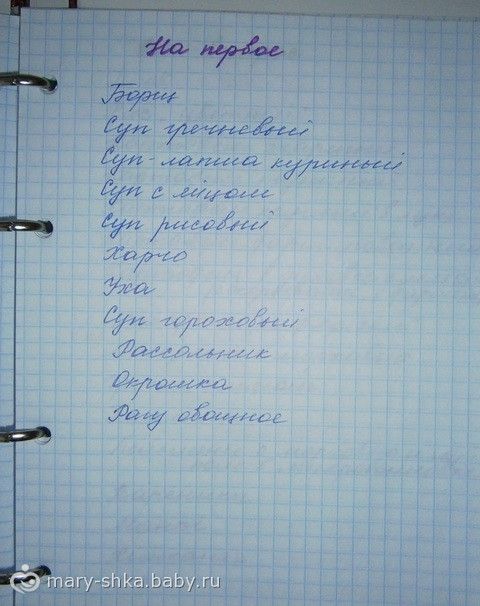 На первое
Борщ
Суп гречневый
Суп-лапша куриный
Суп с яйцом
Суп рисовый
Харчо
Уха
Суп гороховый
Рассольник
Окрошка
Рагу овощное
mary-shka.baby.ru